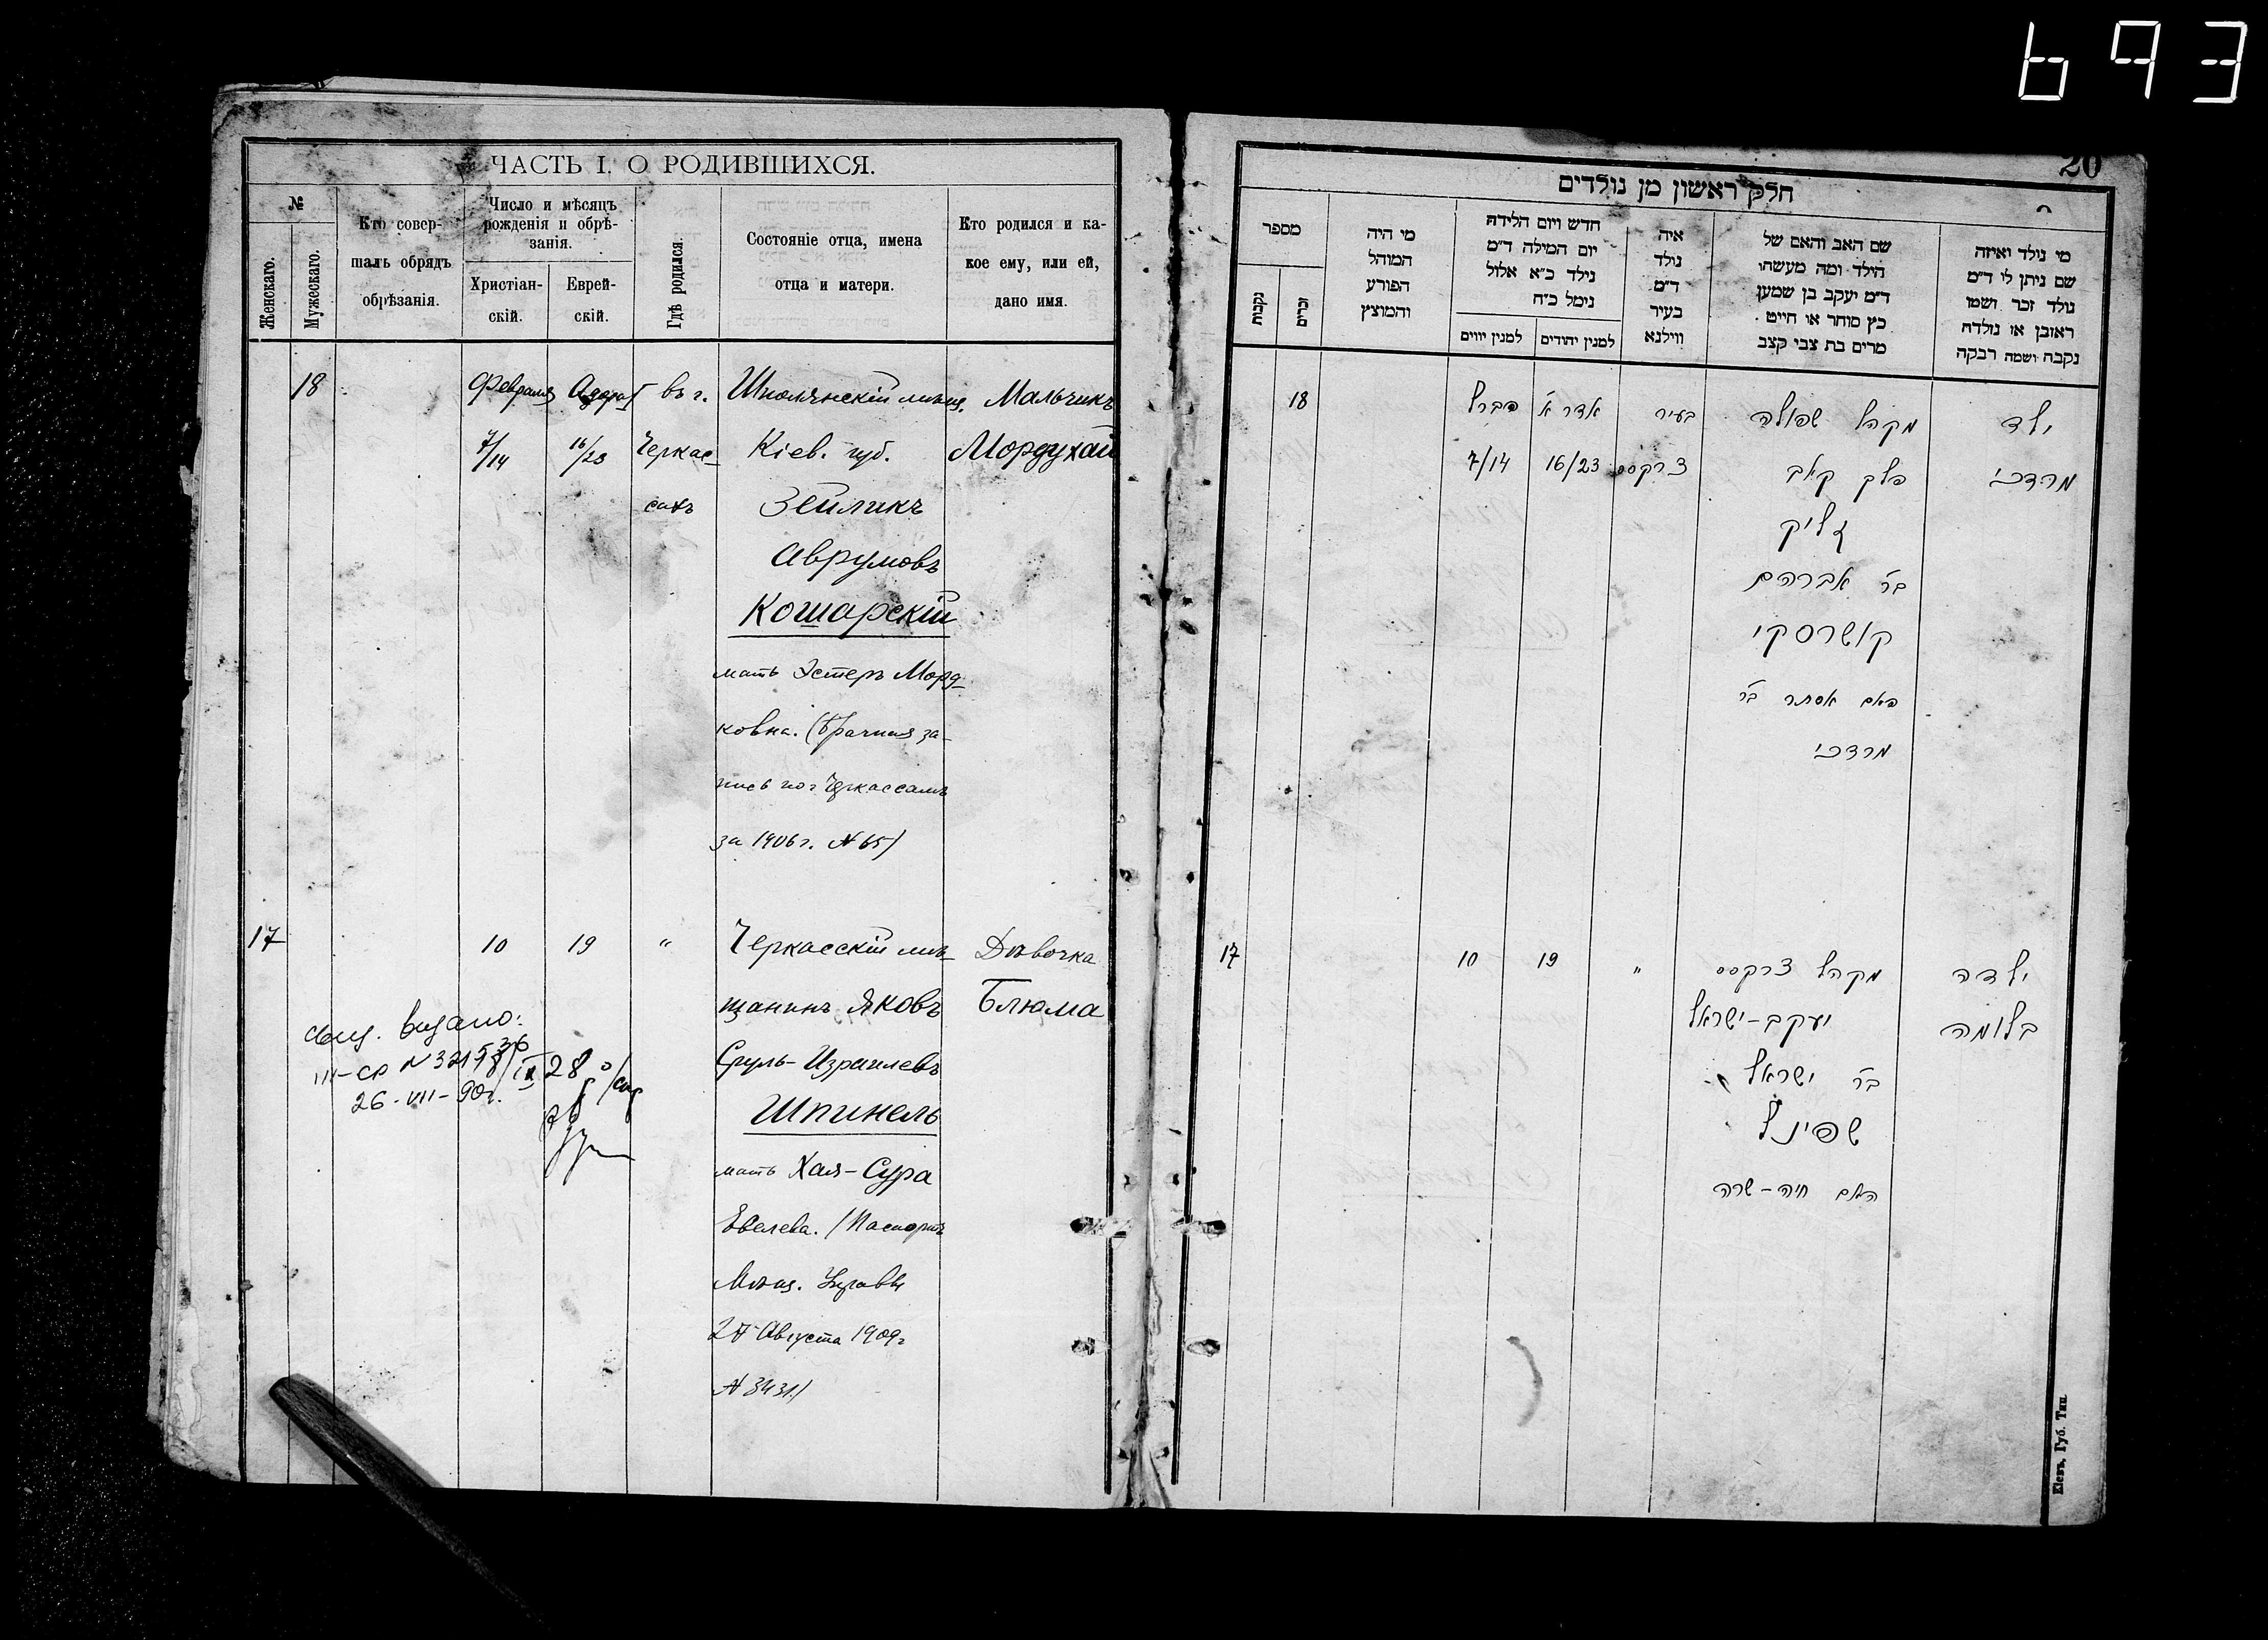 693
ЧАСТЬ I. О РОДИВШИХСЯ.
№
Женскаго.
Мужескаго.
Кто совер-
шалъ обрядъ
обрѣзанія.
Число и мѣсяцъ
рожденія и обрѣ-
занія.
Христіан-
скій.
Еврей-
скій.
Гдѣ родился.
Состояніе отца, имена
отца и матери.
Кто родился и ка-
кое ему, или ей,
дано имя.
18 Февраля Адара I въ г. Шполянскій мѣщ. Мальчикъ
7/14 16/23 Черкас- Кіев. губ. Мордухай
сахъ Зейликъ
Аврумовъ
Кошарскій
мать Эстеръ Морд-
ковна. (Брачная за-
пись по г. Черкассамъ
за 1906 г. № 65)
17 10 19 " Черкасскій мѣ- Дѣвочка
щанинъ Яковъ Блюма
Сруль-Израилевъ
Шпинель
мать Хая-Сура
Евелева. (Паспортъ
Мѣщ. Управы
27 Августа 1909 г.
№ 3431.)
выдано:
III-СР №
26-VII-90г.
20
חלק ראשון מן נולדים
מספר
נקבות
זכרים
מי היה
המוהל
הפורע
והמוצץ
חדש ויום הלידה
יום המילה ד״מ
נילד כ״א אלול
נימל כ״ח
למנין יווים
למנין יהודים
איה
נולד
ד״מ
בעיר
ווילנא
שם האב והאם של
הילד ומה מעשהו
ד״מ יעקב בן שמען
כץ סוחר או חייט
מרים בת צבי קצב
מי נולד ואיזה
שם ניתן לו ד״מ
נולד זכר ושמו
ראובן או נולדה
נקבה ושמה רבקה
18 פברל אדר א׳ בעיר מקהל שפולה ילד
7/14 16/23 צרקסס פלך קאב מרדכי
זליק
בר׳ אברהם
קושרסקי
האם אסתר בר׳
מרדכי
17 10 19 " מקהל צרקסס ילדה
יעקב-ישראל בלומה
בר׳ ישראל
שפינל
האם חיה-שרה
Кіевъ, Губ. Тип.